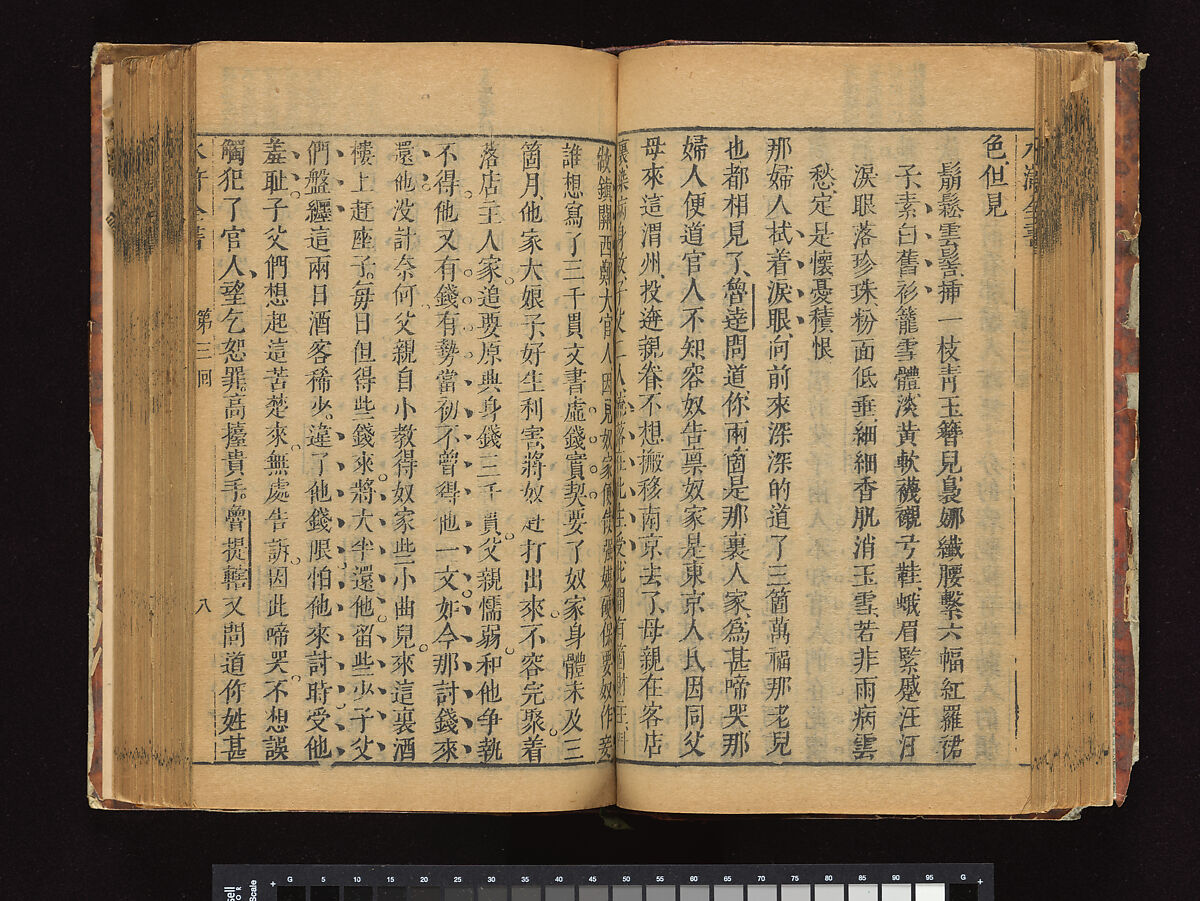 色、但見
鬅鬆雲髻、挿一枝青玉簪兒、裊娜纖腰、繫六幅紅羅裙
子、素白舊衫籠雪體、淡黄軟襪襯弓鞋、蛾眉緊蹙、汪汪
淚眼落珍珠、粉面低垂、細細香肌消玉雪、若非雨病雲
愁、定是懷憂積恨、
那婦人拭着淚眼、向前來深深的道了三箇萬福、那老兒
也都相見了、魯達問道、你兩箇是那裏人家、爲甚啼哭、那
婦人便道、官人不知、容奴告禀、奴家是東京人氏、因同父
母來這渭州、投逩親眷、不想搬移南京去了、母親在客店
裏染病身故、子父二人流落在此生受、此間有箇財主、叫
做鎮關西鄭大官人、因見奴家、便使強媒硬保、要奴作妾
誰想寫了三千貫文書、虚錢實契、要了奴家身體、未及三
箇月、他家大娘子好生利害、將奴赶打出來、不容完聚、着
落店主人家追要原典身錢三千貫、父親懦弱、和他争執
不得、他又有錢有勢、當初不曾得他一文、如今那討錢來
還他、没計奈何、父親自小教得奴家些小曲兒、來這裏酒
樓上赶座子、每日但得些錢來、將大半還他、留些少子父
們盤纏、這兩日酒客稀少、違了他錢限、怕他來討時、受他
羞耻、子父們想起這苦楚來、無處告訴、因此啼哭、不想誤
觸犯了官人、望乞恕罪、高擡貴手、魯提轄又問道、你姓甚
水滸全書 第三回 八
G 5 10 15 20 25 30 35 40 45 50 55 60 65 70 75 80 85 90 95 G